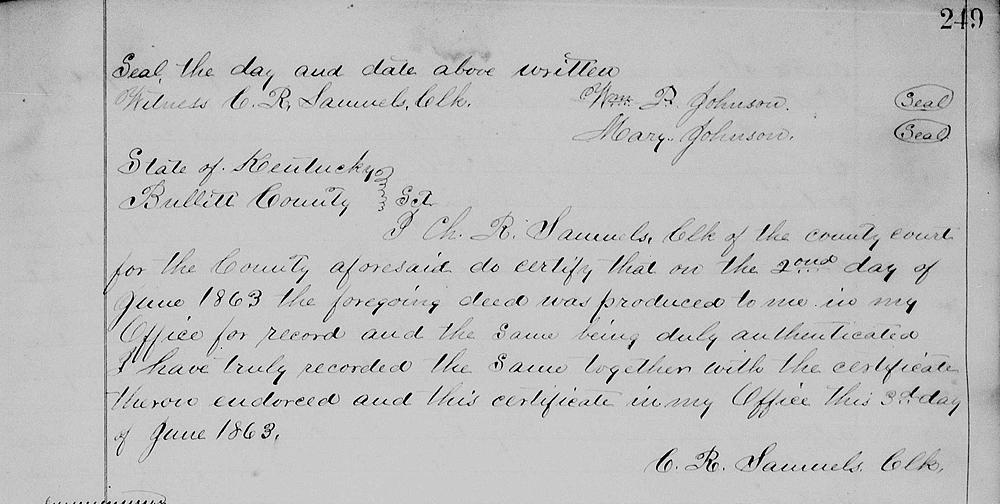 249
Seal, the day and date above written
Witness C. R. Samuels, Clk. Wm. F. Johnson. Seal
Mary Johnson. Seal
State of Kentucky
Bullitt County } Sct.
I Ch. R. Samuels, Clk of the county court
for the County aforesaid do certify that on the 2ond day of
June 1863 the foregoing deed was produced to me in my
Office for record and the same being duly authenticated
I have truly recorded the Same together with the certificate
theron endorced and this certificate in my Office this 3rd day
of June 1863.
C. R. Samuels Clk,